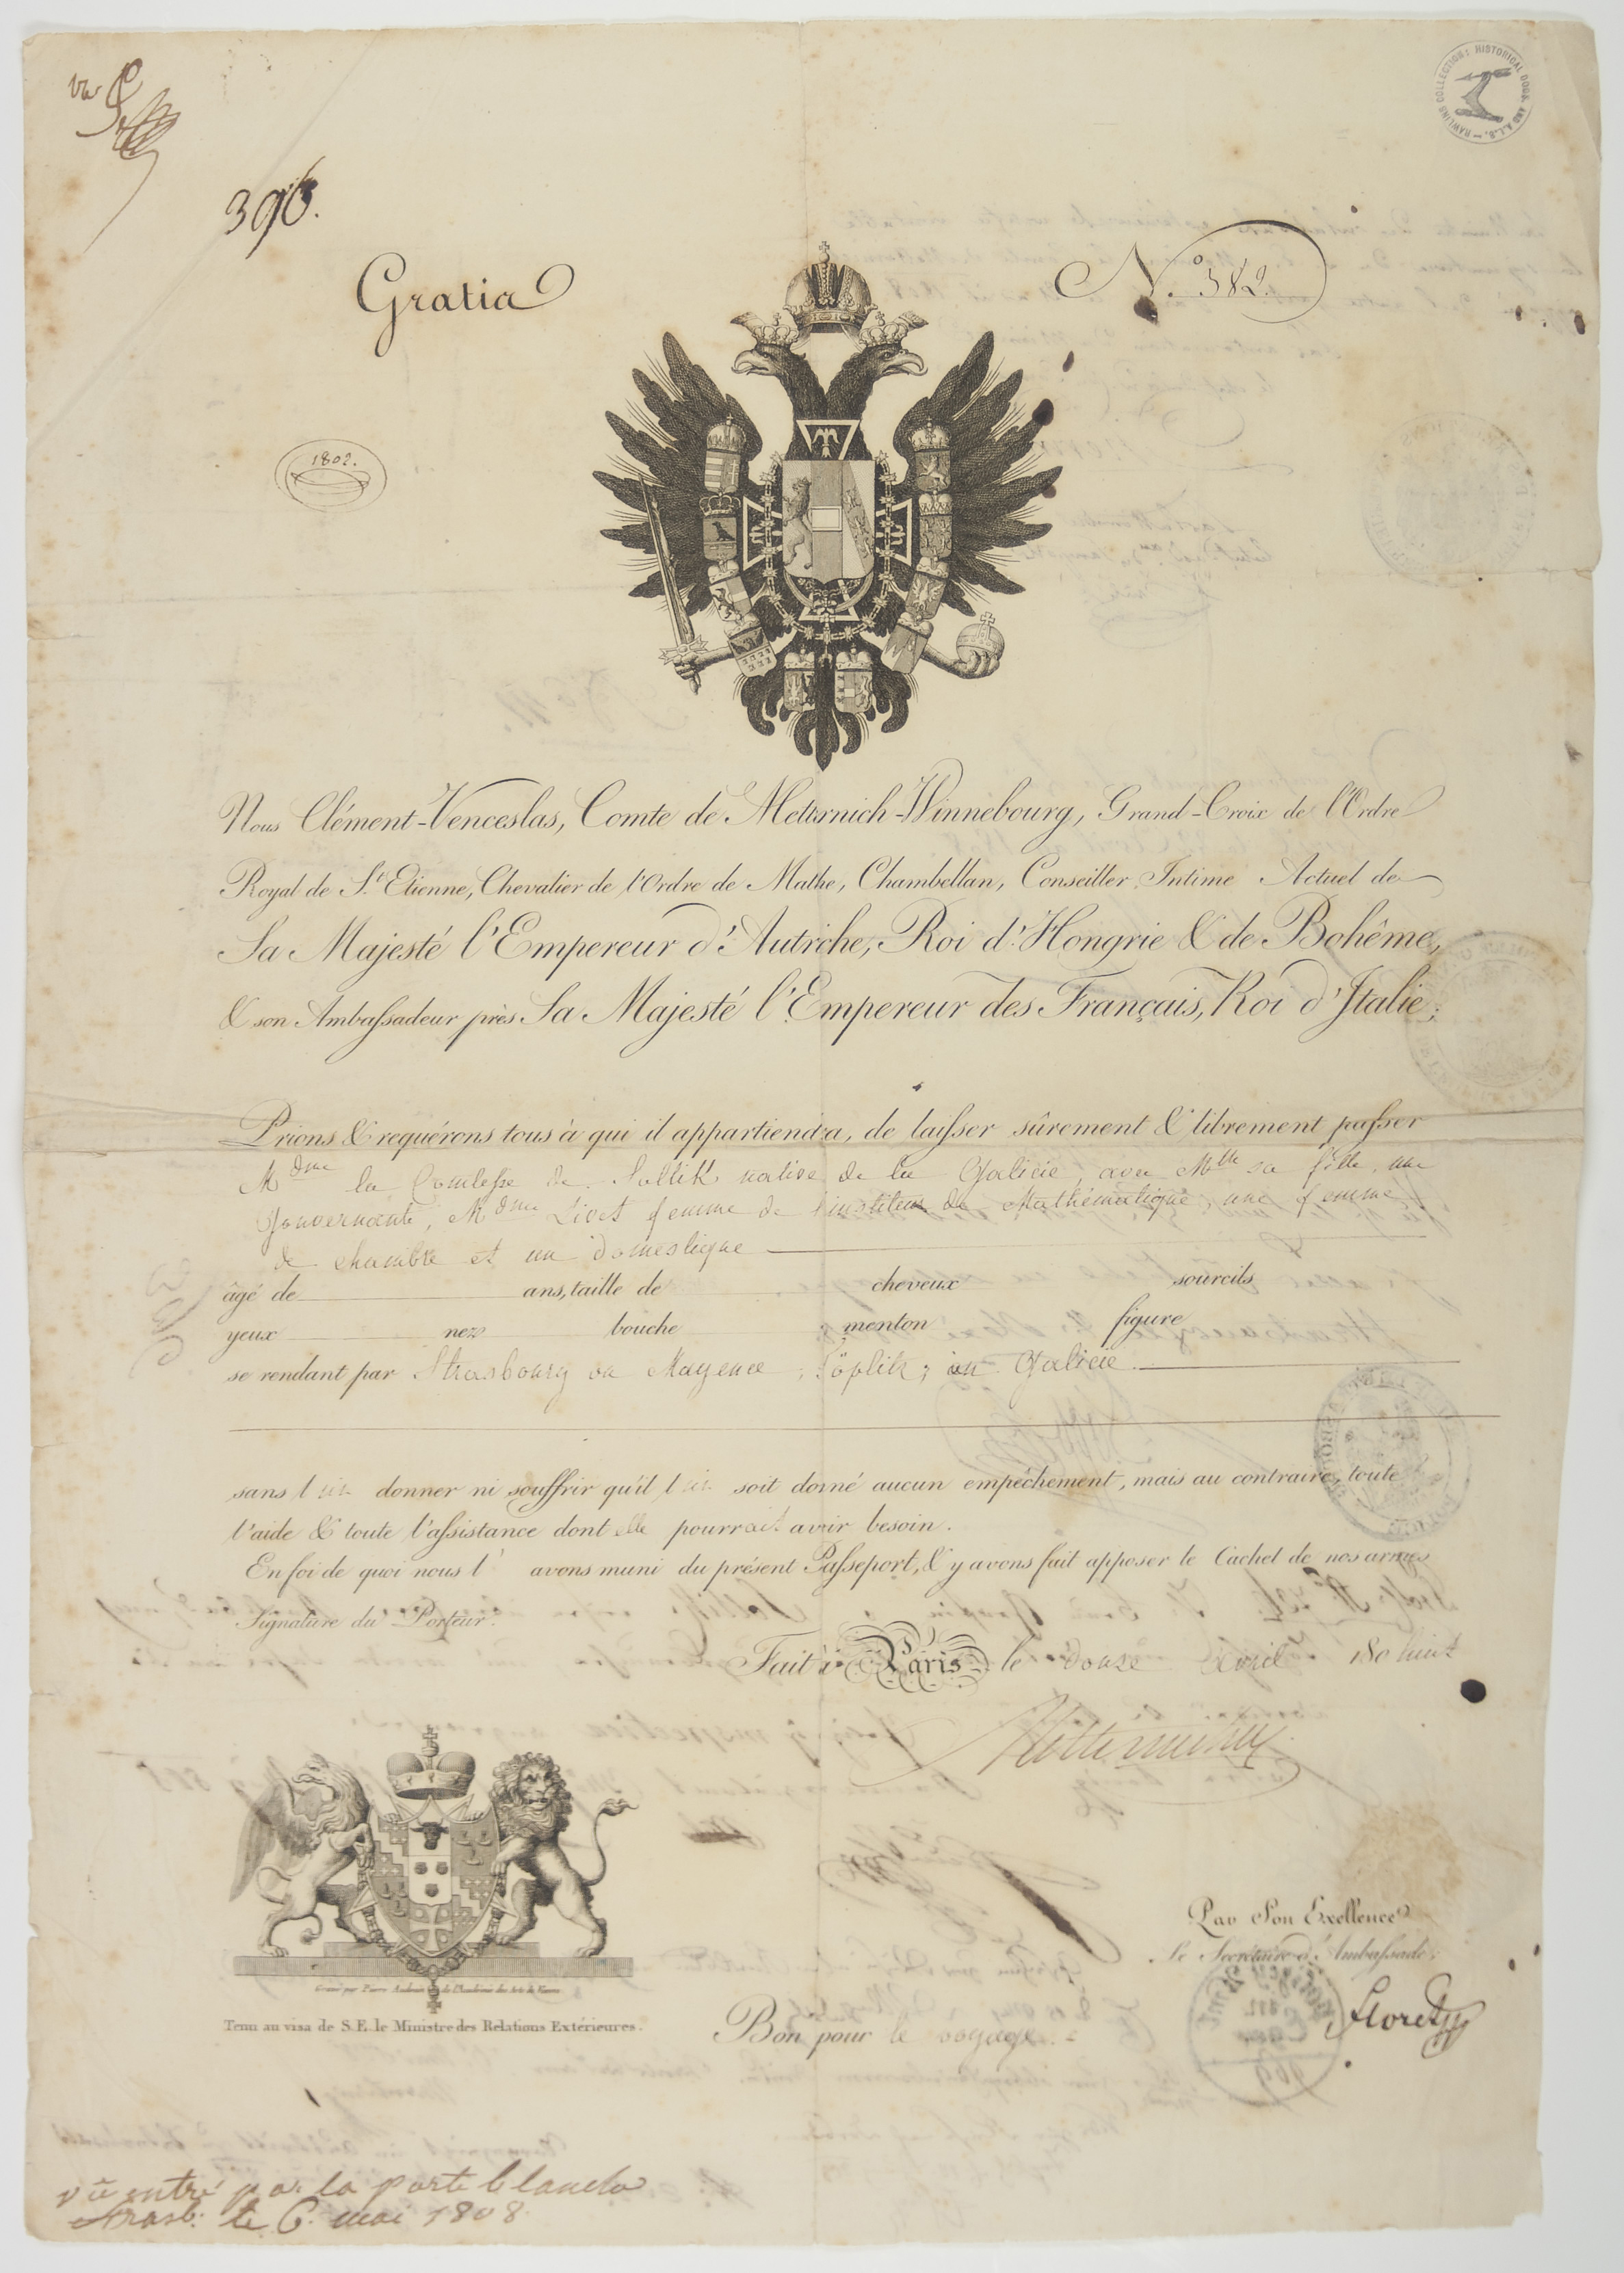 RAWLINS COLLECTION: HISTORICAL DOCS. AND A.L.S.
vu
396.
Gratia
N.° 382.
1802.
Nous Clément-Venceslas, Comte de Metternich-Winnebourg, Grand-Croix de l'Ordre
Royal de S.t Etienne, Chevalier de l'Ordre de Malthe, Chambellan, Conseiller Intime Actuel de
Sa Majesté l'Empereur d'Autriche, Roi d'Hongrie & de Bohême,
& son Ambassadeur près Sa Majesté l'Empereur des Français, Roi d'Italie;
Prions & requérons tous à qui il appartiendra, de laisser sûrement & librement passer
Mdme la Comtesse de Soltik native de la Galicie, avec Mlle sa fille, une
Gouvernante, Mdme Livet femme de l'instituteur de Mathématique, une femme
de chambre et un domestique
âgé de ans, taille de cheveux sourcils
yeux nez bouche menton figure
se rendant par Strasbourg ou Mayence, Töplitz, en Galicie.
sans lui donner ni souffrir qu'il lui soit donné aucun empêchement, mais au contraire, toute
l'aide & toute l'assistance dont elle pourrait avoir besoin.
En foi de quoi nous l' avons muni du présent Passeport, & y avons fait apposer le Cachet de nos armes
Signature du Porteur.
Fait à Paris le douze Avril 180 huit
Metternich
Par Son Exellence
Le Secrétaire d'Ambassade,
Floret
Gravé par Pierre Audouin de l'Académie des Arts de Vienne
Tenu au visa de S.E. le Ministre des Relations Extérieures.
Bon pour le voyage.
vû entré par la porte blanche
Strasb: le 6. mai 1808